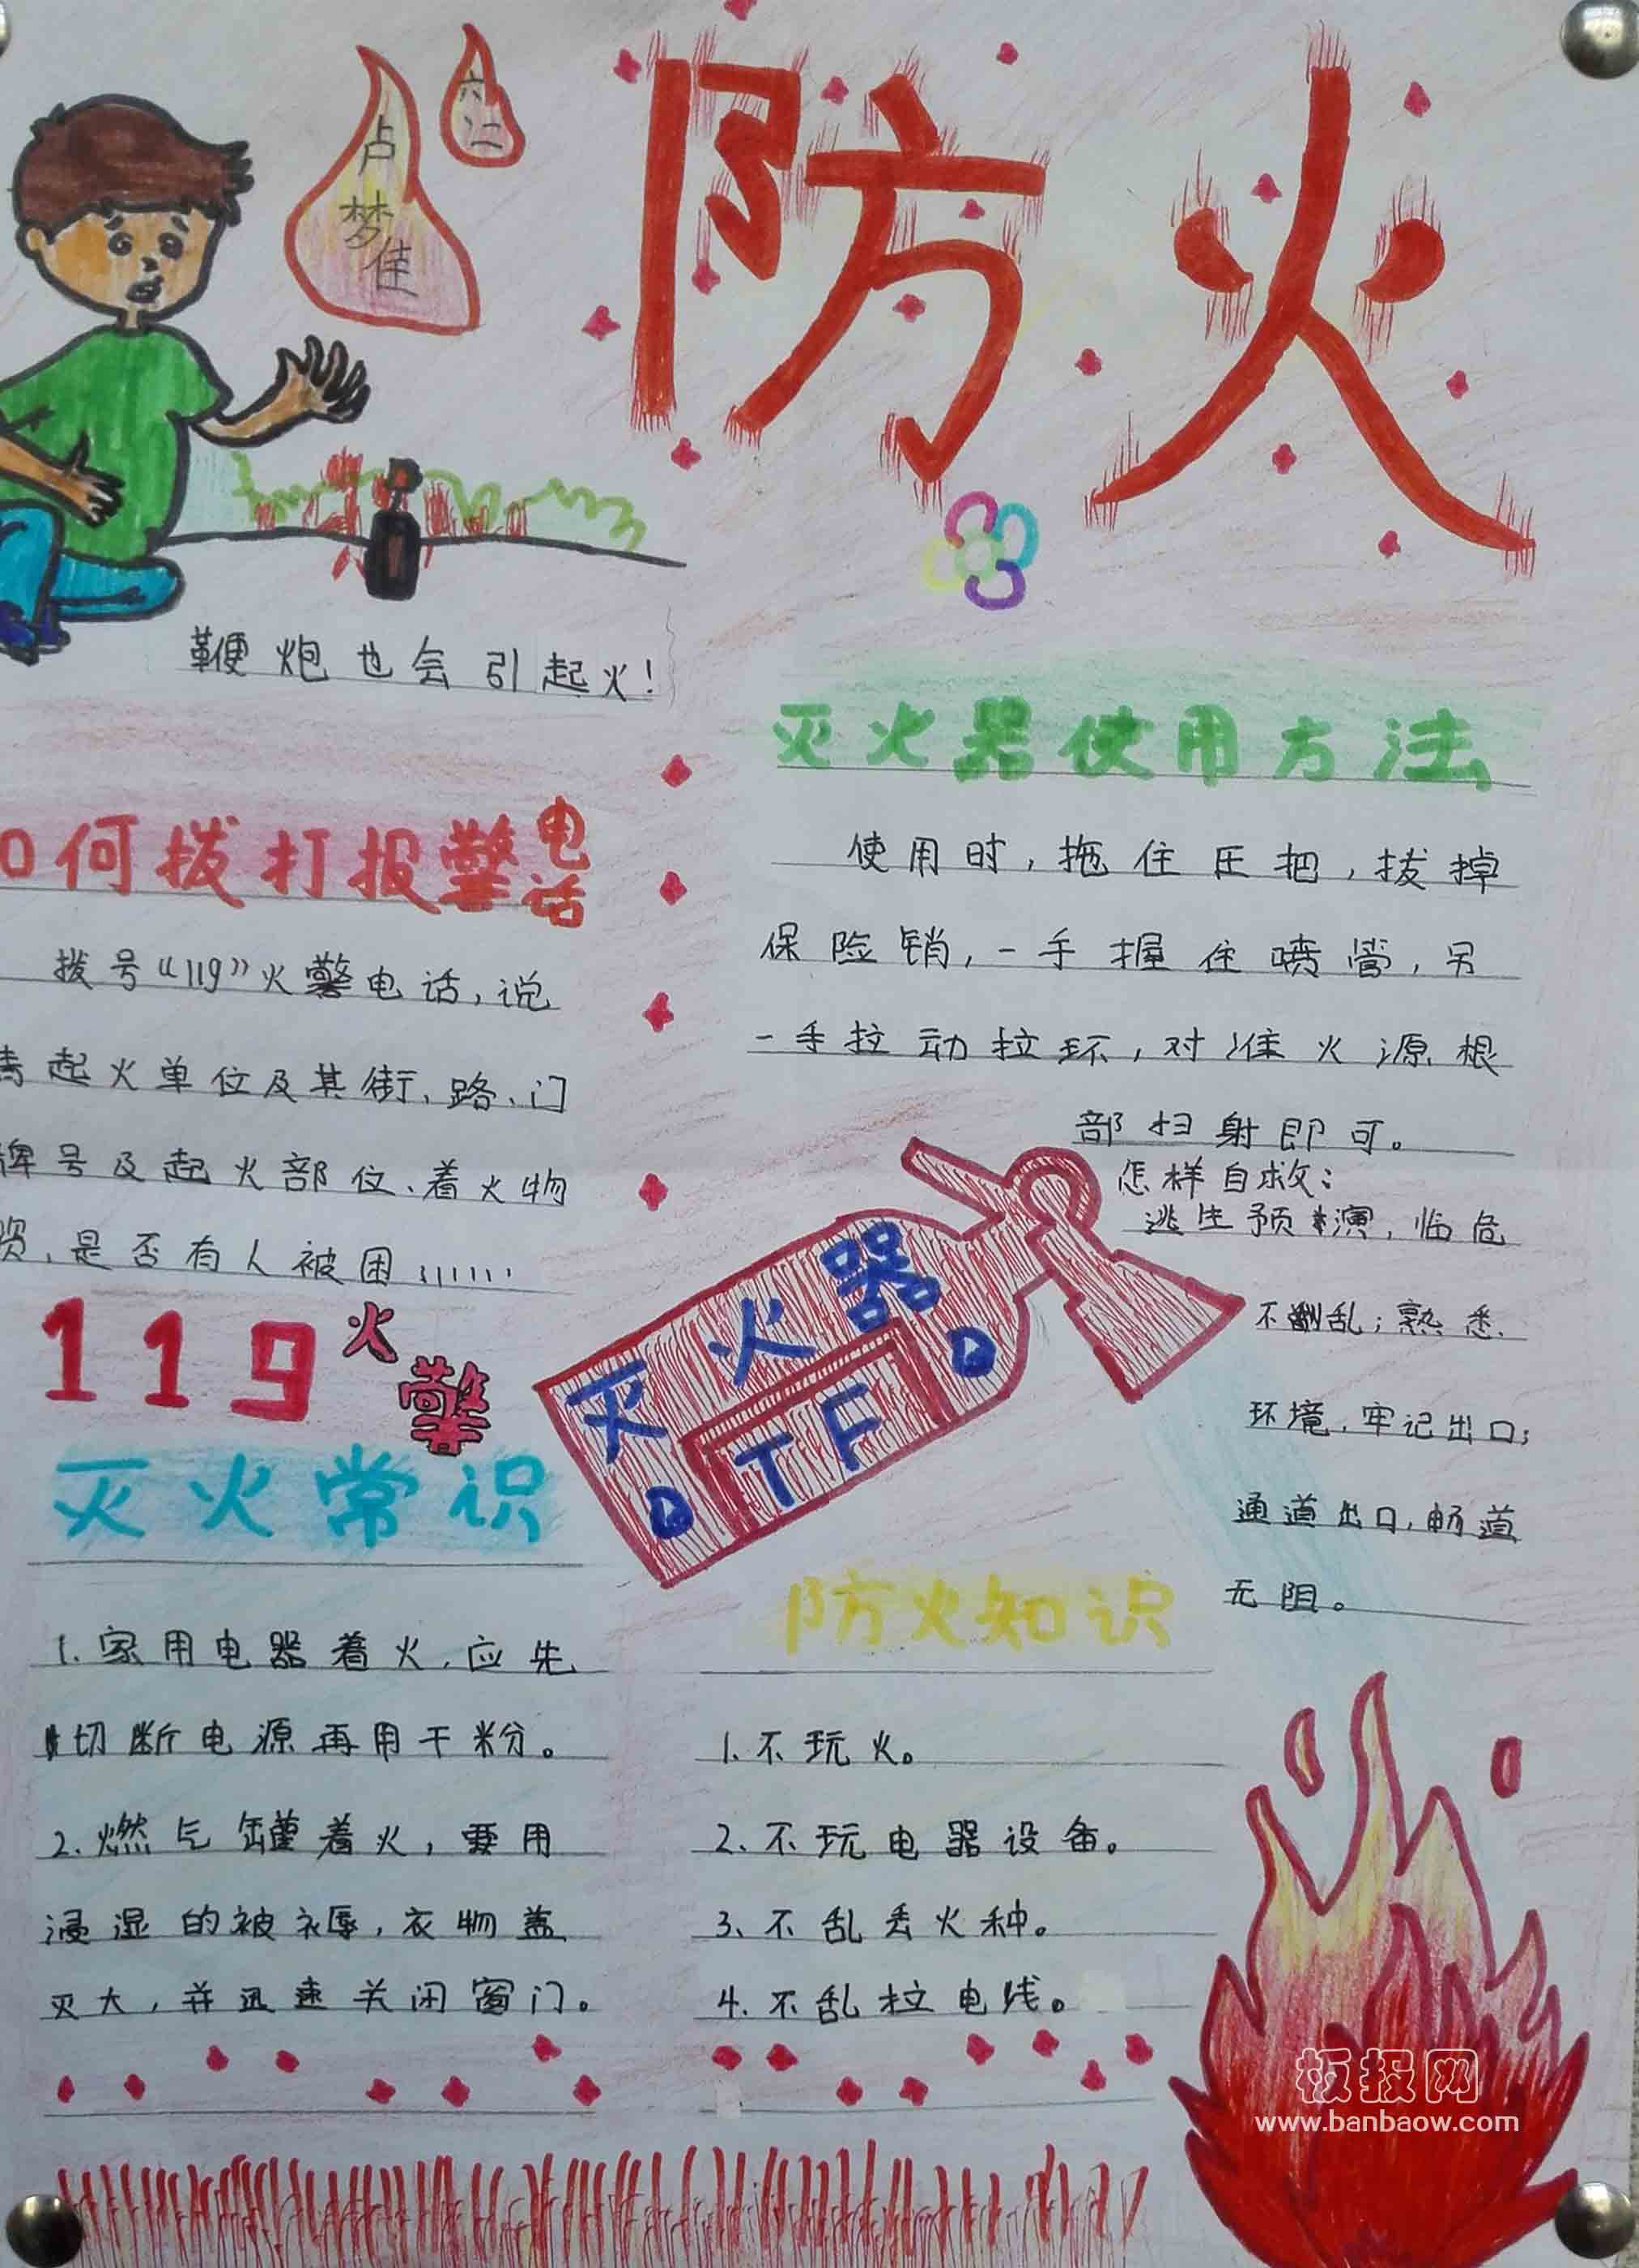 防火
六二
卢梦佳
鞭炮也会引起火!
如何拨打报警电话
拨号“119”火警电话,说
清起火单位及其街、路、门
牌号及起火部位、着火物
资,是否有人被困……
119火警
灭火常识
1.家用电器着火,应先
切断电源再用干粉。
2.燃气罐着火,要用
浸湿的被褥,衣物盖
灭大,并迅速关闭窗门。
灭火器使用方法
使用时,拖住压把,拔掉
保险销,一手握住喷管,另
一手拉动拉环,对准火源根
部扫射即可。
怎样自救:
逃生预演,临危
不乱;熟悉
环境,牢记出口;
通道出口,畅道
无阻。
灭火器
TF
防火知识
1.不玩火。
2.不玩电器设备。
3.不乱丢火种。
4.不乱拉电线。
板报网
www.banbaow.com